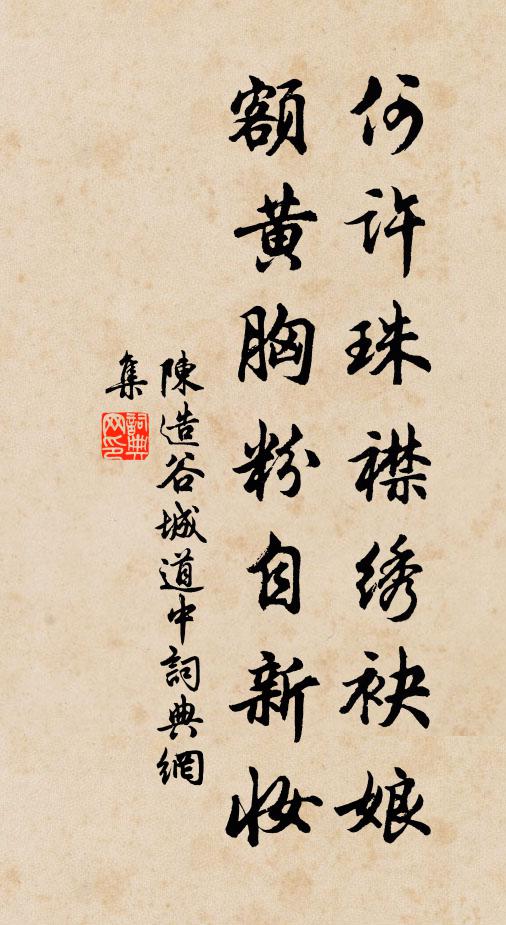 何许珠襟绣袂娘
额黄胸粉自新妆
陳造谷城道中詞典網
集
詞典
网印